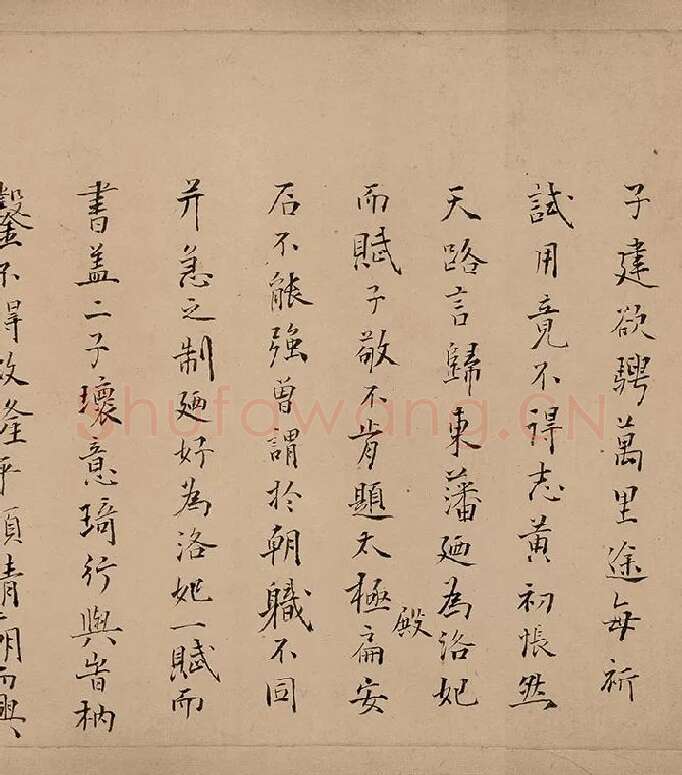 子建欲騁萬里途每祈
試用竟不得志黃初悵然
天路言歸東藩廼為洛妃
而賦子敬不肯題太極扁安
殿
石不能強曾謂於朝職不同
并急之制廼好為洛妃一賦而
書蓋二子瓌意琦行與昔枘
鑿不得平須清而與
Shufawang.CN